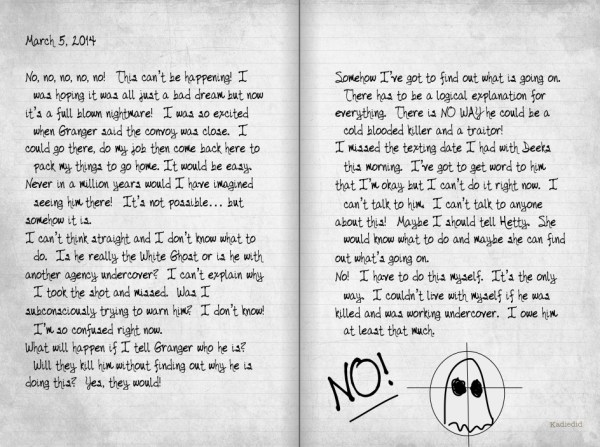 March 5, 2014
No, no, no, no, no! This can't be happening! I
was hoping it was all just a bad dream but now
it's a full blown nightmare! I was so excited
when Granger said the convoy was close. I
could go there, do my job then come back here to
pack my things to go home. It would be easy.
Never in a million years would I have imagined
seeing him there! It's not possible... but
somehow it is.
I can't think straight and I don't know what to
do. Is he really the White Ghost or is he with
another agency undercover? I can't explain why
I took the shot and missed. Was I
subconsciously trying to warn him? I don't know!
I'm so confused right now.
What will happen if I tell Granger who he is?
Will they kill him without finding out why he is
doing this? Yes, they would!
Somehow I've got to find out what is going on.
There has to be a logical explanation for
everything. There is NO WAY he could be a
cold blooded killer and a traitor!
I missed the texting date I had with Deeks
this morning. I've got to get word to him
that I'm okay but I can't do it right now. I
can't talk to him. I can't talk to anyone
about this! Maybe I should tell Hetty. She
would know what to do and maybe she can find
out what's going on.
No! I have to do this myself. It's the only
way. I couldn't live with myself if he was
killed and was working undercover. I owe him
at least that much.
NO!
Kadiedid